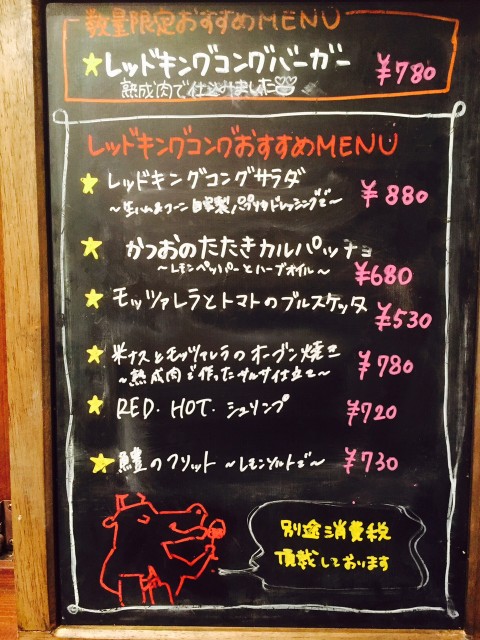 数量限定おすすめMENU
レッドキングコングバーガー ¥780
熟成肉で仕込みました
レッドキングコングおすすめMENU
レッドキングコングサラダ ¥880
～生ハム&コーン 自家製パプリカドレッシングで～
かつおのたたきカルパッチョ
～レモンペッパーとハーブオイル～ ¥680
モッツァレラとトマトのブルスケッタ ¥530
米ナスとモッツァレラのオーブン焼き ¥780
～熟成肉で作ったサルサ仕立て～
RED・HOT・シュリンプ ¥720
鱧のフリット ～レモンソルトで～ ¥730
別途消費税
頂戴しております